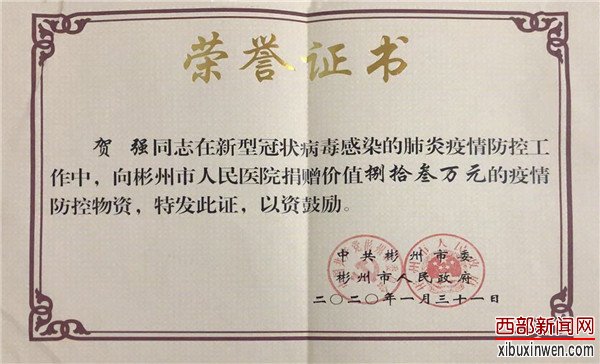 荣誉证书
贺 强同志在新型冠状病毒感染的肺炎疫情防控工
作中，向彬州市人民医院捐赠价值捌拾叁万元的疫情
防控物资，特发此证，以资鼓励。
中共彬州市委
彬州市人民政府
二〇二〇年一月三十一日
西部新闻网
xibuxinwen.com